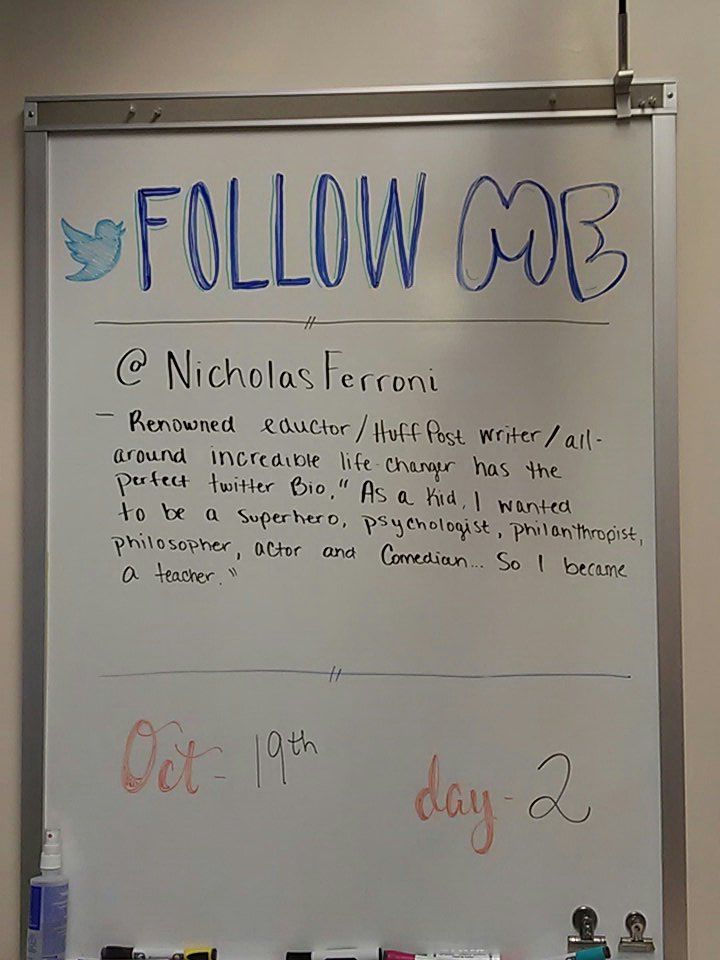 FOLLOW ME
@NicholasFerroni
- Renowned eductor/HuffPost writer/all-
around incredible life-changer has the
perfect twitter Bio. "As a kid, I wanted
to be a superhero, psychologist, philanthropist,
philosopher, actor and Comedian... So I became
a teacher."
Oct - 19th
day - 2